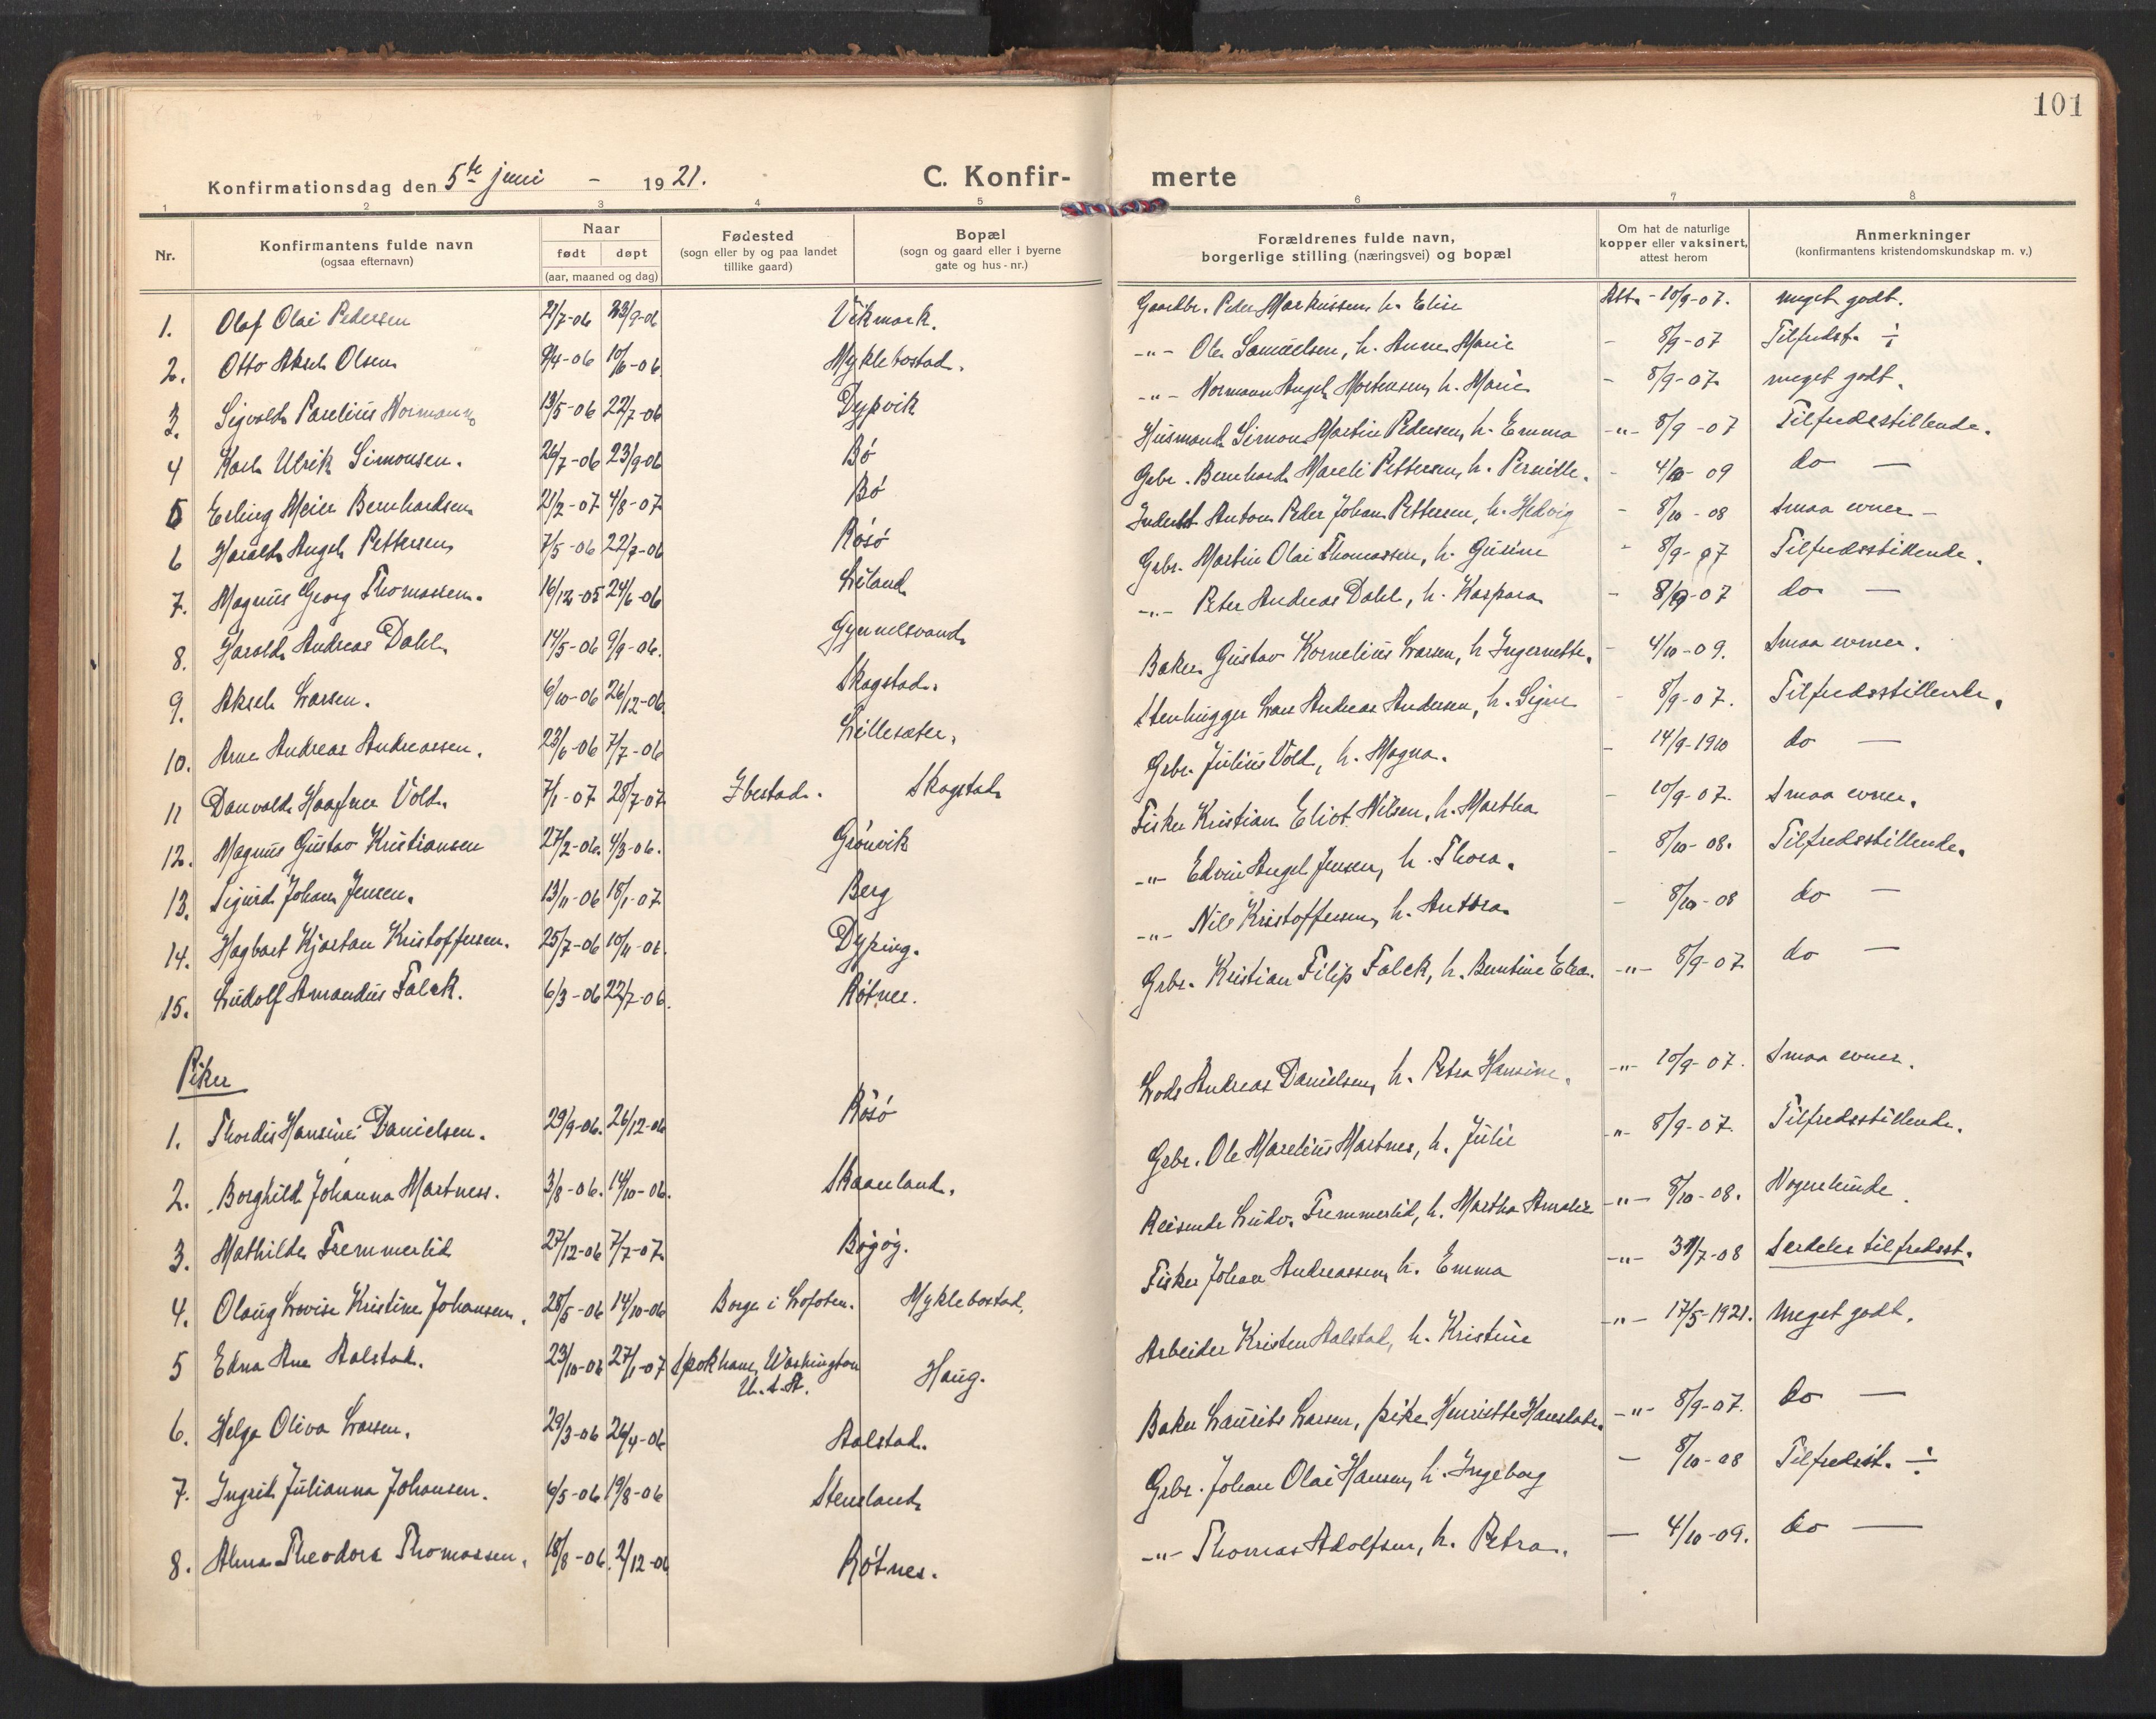 101
Konfirmationsdag den 5te juni – 1921. C. Konfir- merte
1 2 3 4 5 6 7 8
Nr. Konfirmantens fulde navn (ogsaa efternavn) Naar født døpt (aar, maaned og dag) Fødested (sogn eller by og paa landet tillike gaard) Bopæl (sogn og gaard eller i byerne gate og hus-nr.) Forældrenes fulde navn, borgerlige stilling (næringsvei) og bopæl Om hat de naturlige kopper eller vaksinert, attest herom Anmerkninger (konfirmantens kristendomskundskap m. v.)
1. Olaf Olai Pedersen 21/7-06 23/9-06 Vikmark. Gaardbr. Peder Markussen, h. Elise Att. - 10/9-07. meget godt.
2. Otto Aksel Olsen 9/4-06 10/6-06 Myklebostad. -"- Ole Samuelsen, h. Anne Marie - 8/9-07 Tilfredst. ÷
3. Sigvald Parelius Normann 19/5-06 22/7-06 Dypvik -"- Normann Angel Mortensen, h. Marie - 8/9-07. meget godt.
4 Karl Ulrik Simonsen. 26/7-06 23/9-06 Bø Husmand Simon Martin Pedersen, h. Emma -"- 8/9-07 Tilfredsstillende.
5 Erling Meier Bernhardsen 21/2-07 4/8-07 Bø Grbr. Bernhard Mareli Pettersen, h. Pernille. - 4/10-09 do —
6 Harald Angel Pettersen 7/5-06 22/7-06 Røsø Inderst Anton Peder Johan Pettersen, h. Hedvig - 8/10-08 Smaa evner -
7. Magnus Georg Thomassen. 16/12-05 24/6-06 Liland Grbr. Martin Olai Thomassen, h. Gusine - 8/9-07 Tilfredsstillende.
8. Harald Andreas Dahl. 14/5-06 9/9-06. Gyunelsvand -"- Peter Andreas Dahl, h. Kaspara - 8/9-07 do —
9. Aksel Larsen. 6/10-06 26/12-06. Skogstad. Baker Gustav Kornelius Larsen, h Ingernette. - 4/10-09. Smaa evner.
10. Arne Andreas Andreassen. 23/6-06 7/7-06 Lillesæter. Stenhugger Lars Andreas Andersen, h. Signe - 8/9-07. Tilfredsstillende.
11 Danvald Haagfner Vold. 7/1-07 28/7-07 Ibestad. Skogstad Grbr. Julius Vold, h. Magna. - 14/9-1910 do —
12. Magnus Gustav Kristiansen 27/2-06. 4/3-06. Grønvik Fisker Kristian Eliot Nilsen, h. Martha - 10/9-07. Smaa evner.
13. Sigurd Johan Jensen. 13/11-06 18/1-07 Berg -"- Edvin Angel Jensen, h. Thora. - 8/10-08. Tilfredsstillende.
14. Hagbart Kjartan Kristoffersen. 25/7-06 10/11-06. Dyping. -"- Nils Kristoffersen, h. Antora - 8/10-08 do —
15. Ludolf Amandus Falck. 6/3-06 22/7-06. Røtnes. Grbr. Kristian Filip Falck, h. Berntine Elea. -"- 8/9-07 do —
Piker
1. Thordis Hansine Danielsen. 29/9-06. 26/12-06 Røsø Lods Andreas Danielsen, h. Petra Hansine. -"- 10/9-07. Smaa evner.
2. Borghild Johanna Martness. 3/8-06. 14/10-06. Skaanland. Grbr. Ole Marelius Martnes, h. Julie -"- 8/9-07. Tilfredsstillende.
3. Mathilde Fremmerlid 27/12-06 7/7-07 Bogøg. Reisende Ludv. Fremmerlid, h. Martha Amalie -"- 8/10-08. Nogenlunde.
4. Olaug Lovise Kristine Johansen. 28/5-06 14/10-06 Borge i Lofoten. Myklebostad. Fisker Johan Andreassen, h. Emma -"- 31/7-08 Serdeles tilfredsst.
5 Edna Ane Aalstad. 23/10-06 27/1-07 Spokhane, Washington U.S.A. Haug. Arbeider Kristen Aalstad, h. Kristine -"- 17/5-1921. Meget godt.
6. Helga Oliva Larsen. 29/3-06 26/4-06 Aalstad. Baker Laurits Larsen, pike Henriette Hanslabr. -"- 8/9-07. do —
7. Ingrid Julianna Johansen. 6/5-06 19/8-06 Stensland Grbr. Johan Olai Hansen, h. Ingeborg - 8/10-08 Tilfredsst. ÷
8. Alma Theodora Thomassen. 18/8-06. 2/12-06 Røtnes. -"- Thomas Adolfsen, h. Petra. — 4/10-09. do —